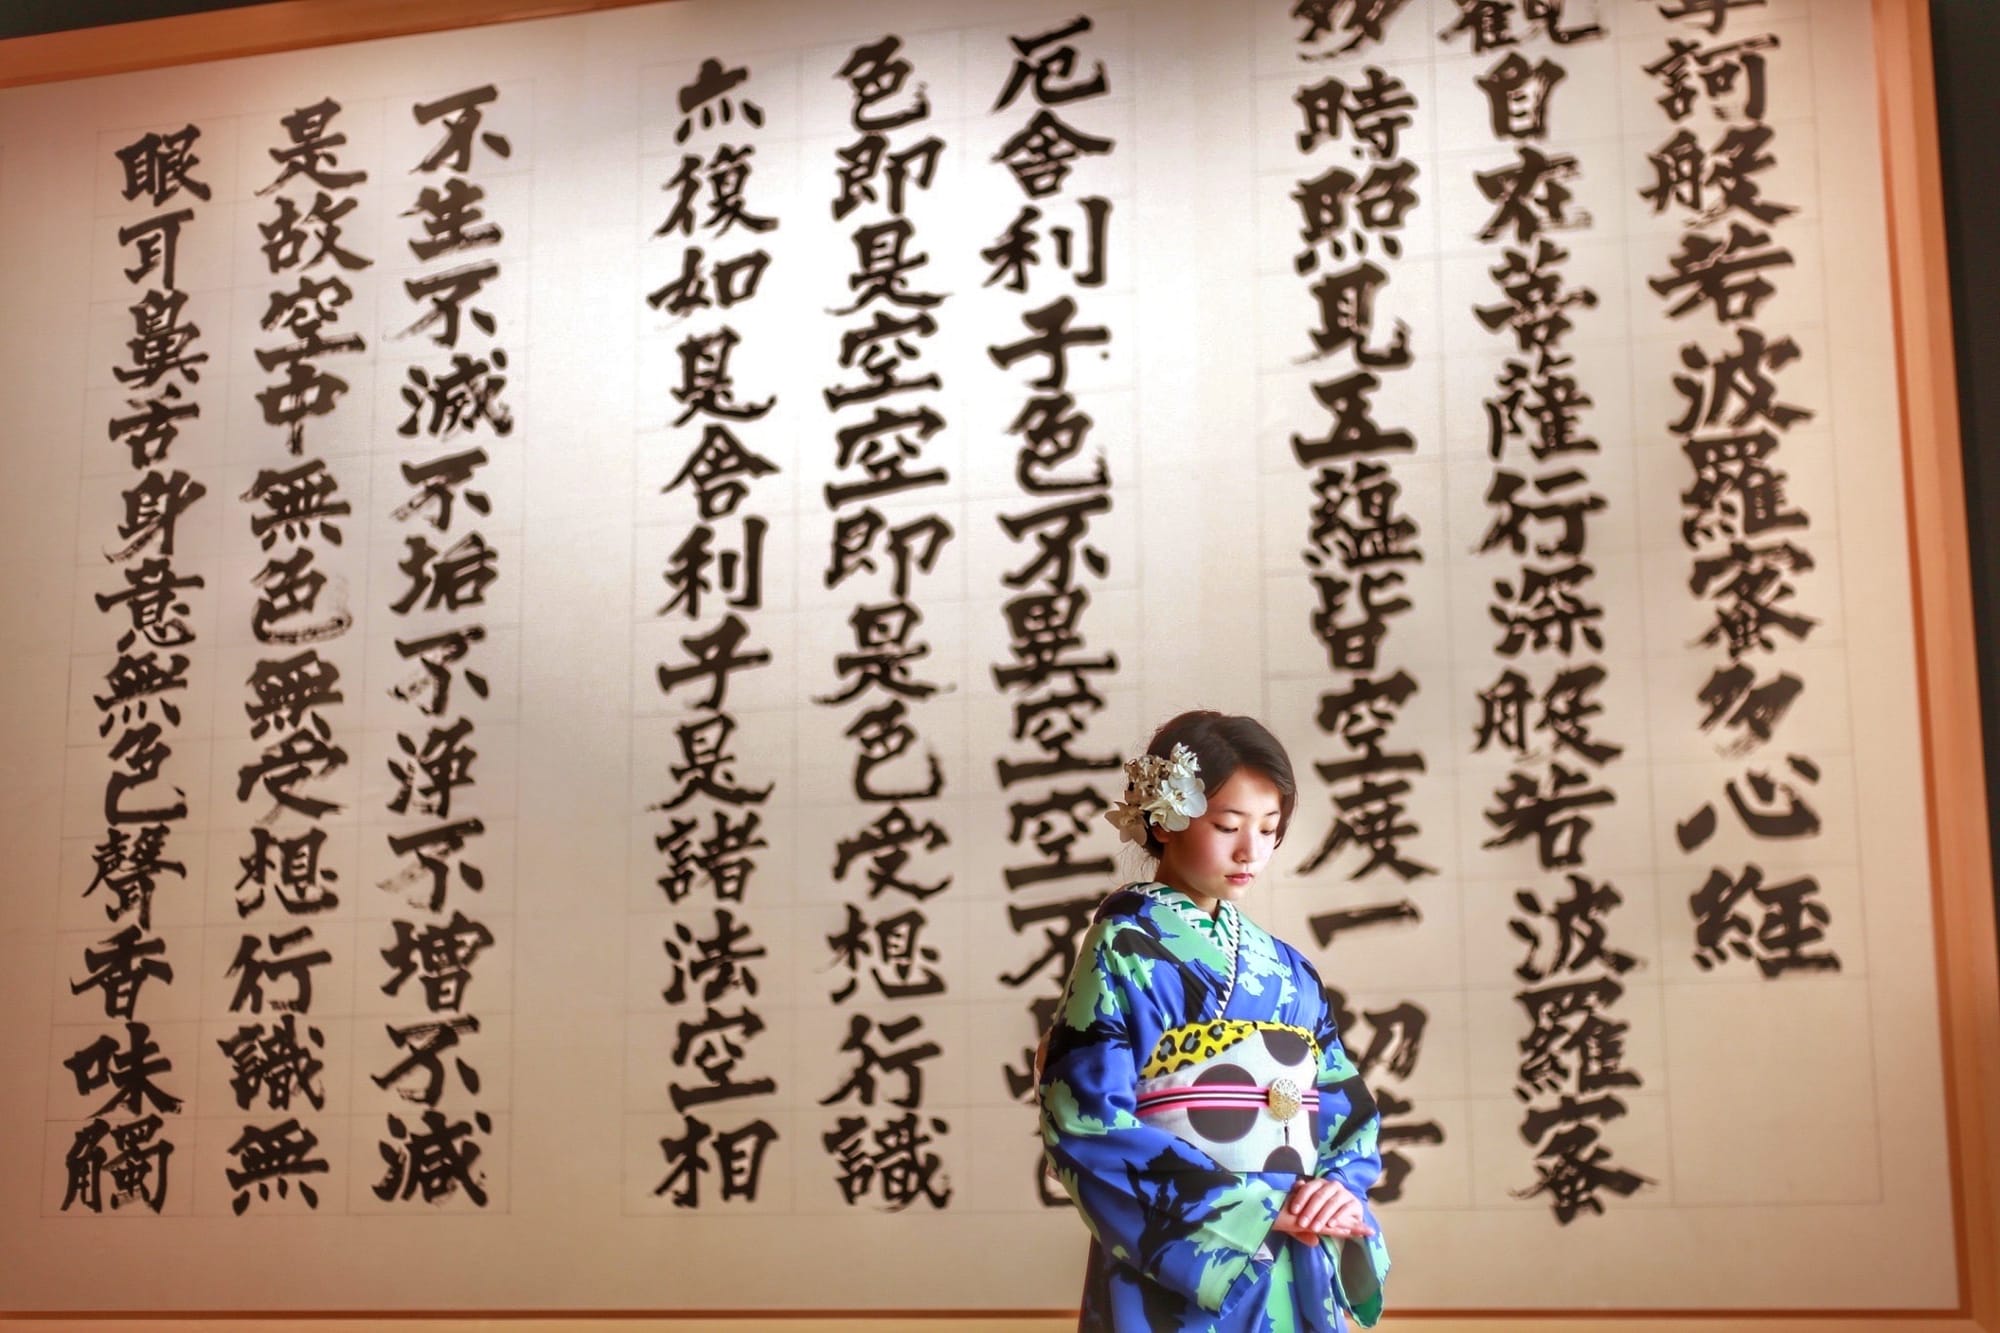 訶般若波羅蜜多心経
觀自在菩薩行深般若波羅蜜
多時照見五蘊皆空度一切苦
厄舎利子色不異空空不
色即是空空即是色受想行識
亦復如是舎利子是諸法空相
不生不滅不垢不浄不増不減
是故空中無色無受想行識無
眼耳鼻舌身意無色聲香味觸